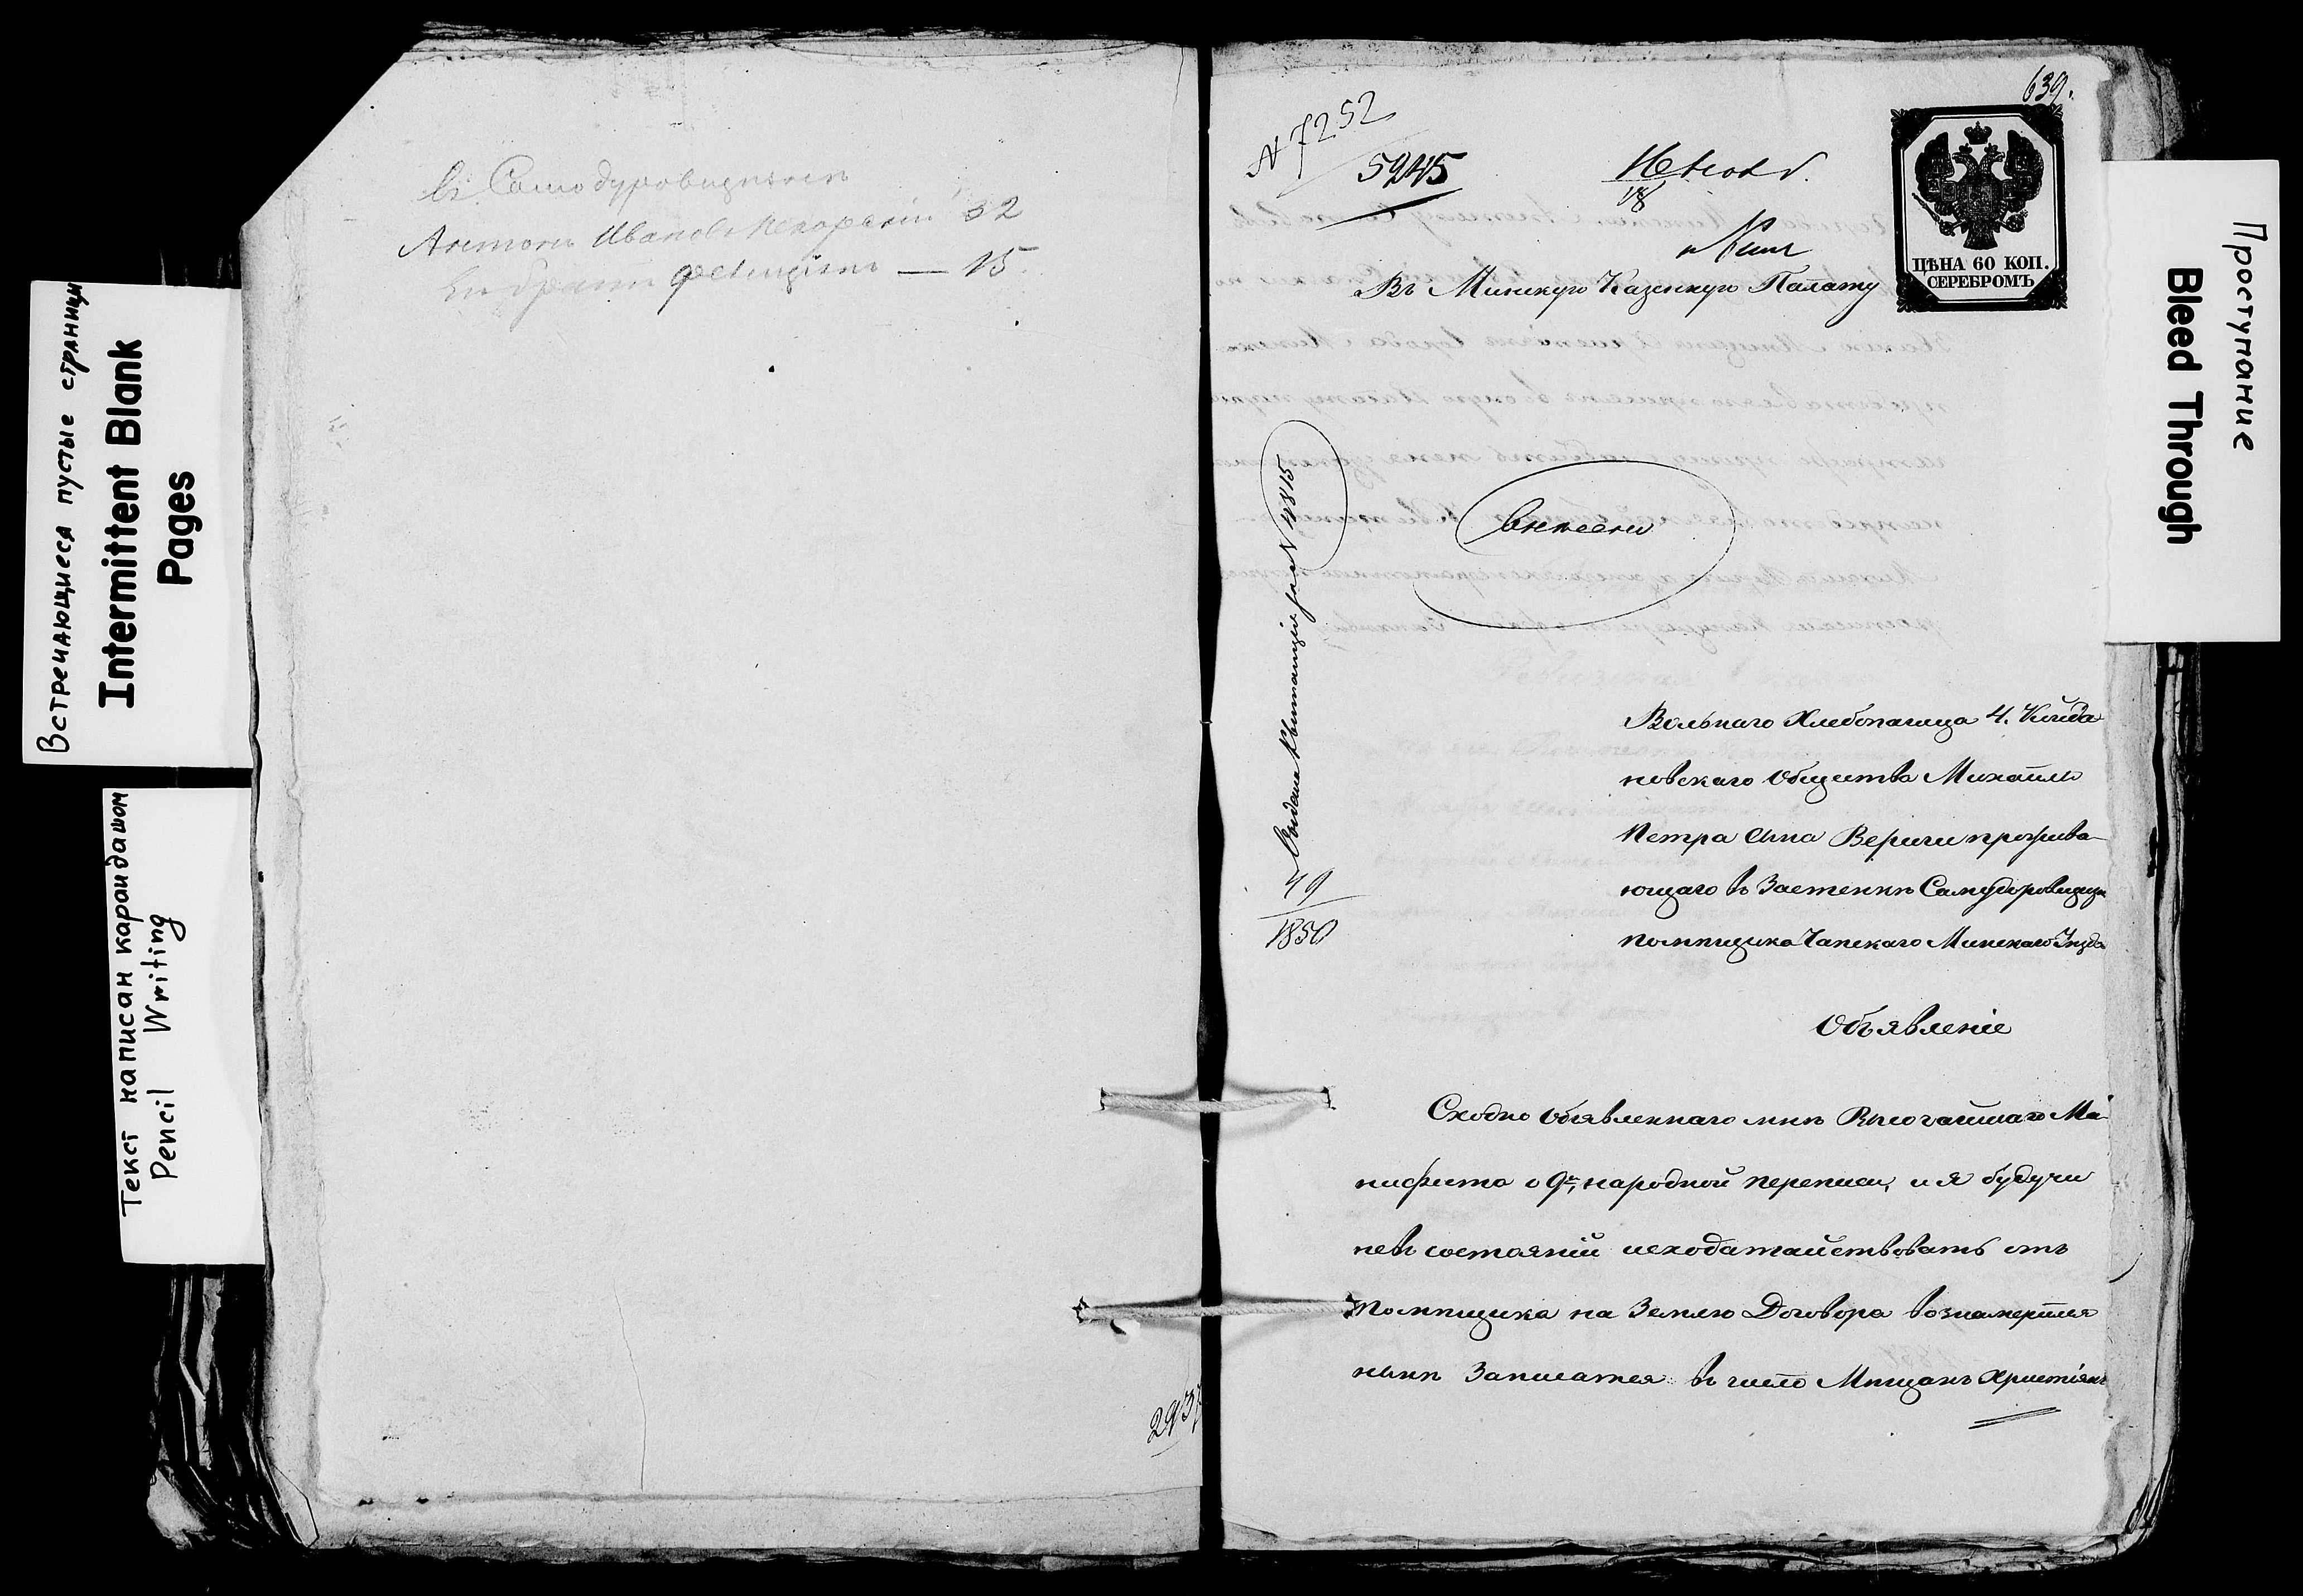 Встречающиеся пустые страницы
Intermittent Blank
Pages
Текст написан карандашом
Pencil Writing
въ Самодуровщизнѣ
Антонъ Ивановъ Пекарскій 32
братъ Фелиціанъ — 15
2937
639.
N 7252
5245
18
ЦѢНА 60 КОП.
СЕРЕБРОМЪ
Въ Минскую Казенную Палату
Внесены
Выдана Квитанція за N 4815
49
1850
Вольнаго Хлебопашца 4. Койда
новскаго Общества Михаила
Петра сына Вериги прожива
ющаго въ Застенкѣ Самудоровщизн
помѣщика Чапскаго Минскаго Уѣзда
Объявленіе
Сходно объявленнаго мнѣ Высочайшаго Ма
нифеста о 9й, народной переписи, и я будучи
невъ состояніи исходатайствовать отъ
помѣщика на Землю Договора вознамерился
нынѣ Записатся въ число Мѣщанъ Христіянъ
Проступание
Bleed Through